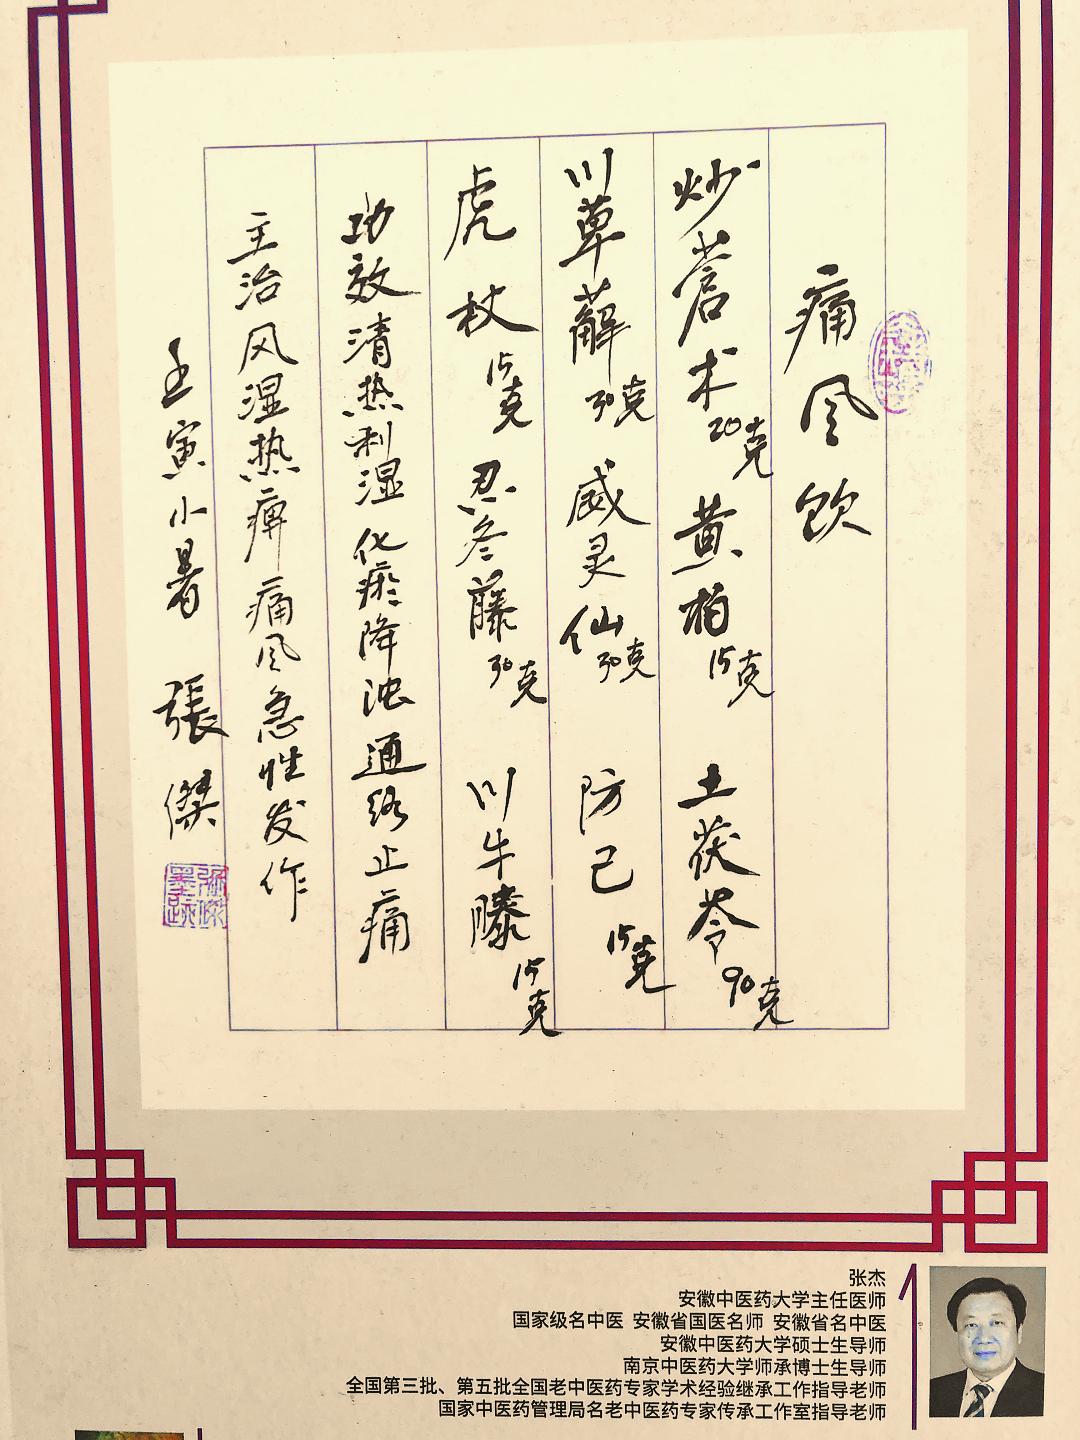 痛风饮
炒苍术20克 黄柏15克 土茯苓90克
川萆薢30克 威灵仙30克 防己15克
虎杖15克 忍冬藤30克 川牛膝15克
功效清热利湿化瘀降浊通络止痛
主治风湿热痹痛风急性发作
壬寅小暑 張傑
张杰
安徽中医药大学主任医师
国家级名中医 安徽省国医名师 安徽省名中医
安徽中医药大学硕士生导师
南京中医药大学师承博士生导师
全国第三批、第五批全国老中医药专家学术经验继承工作指导老师
国家中医药管理局名老中医药专家传承工作室指导老师